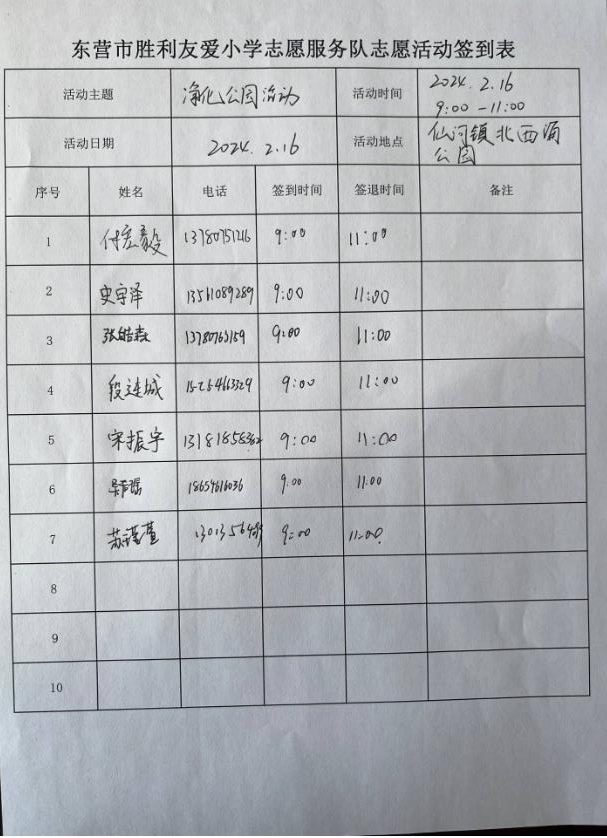 东营市胜利友爱小学志愿服务队志愿活动签到表
活动主题 净化公园活动 活动时间 2024.2.16
9:00-11:00
活动日期 2024.2.16 活动地点 仙河镇北西涌
公园
序号 姓名 电话 签到时间 签退时间 备注
1 付宏毅 13780751216 9:00 11:00
2 史宇泽 13561089289 9:00 11:00
3 张皓森 13780763159 9:00 11:00
4 段连城 15254663329 9:00 11:00
5 宋振宇 9:00 11:00
6 18654616036 9:00 11:00
7 9:00 11:00
8
9
10